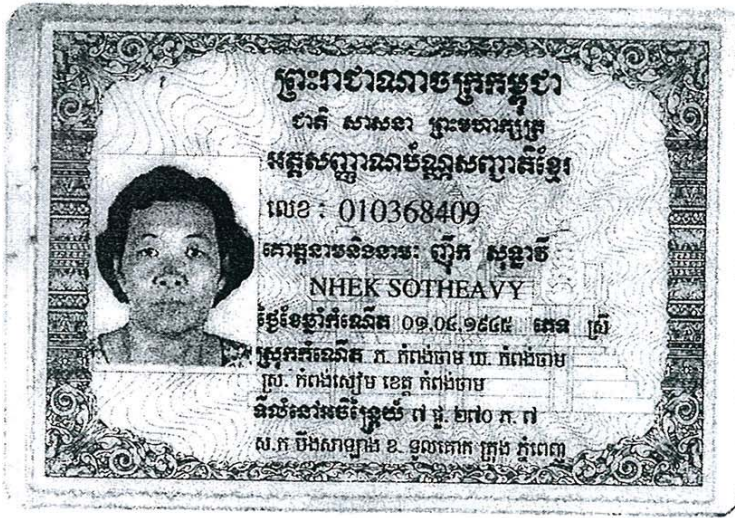 ព្រះរាជាណាចក្រកម្ពុជា
ជាតិ សាសនា ព្រះមហាក្សត្រ
អត្តសញ្ញាណប័ណ្ណសញ្ជាតិខ្មែរ
លេខ : 010368409
គោត្តនាមនិងនាម: ញ៉ឹក សុទ្ធាវី
NHEK SOTHEAVY
ថ្ងៃខែឆ្នាំកំណើត ០១.០៤.១៩៤៥ ភេទ ស្រី
ស្រុកកំណើត ភ. កំពង់ចាម ឃ. កំពង់ចាម
ស្រ. កំពង់សៀម ខេត្ត កំពង់ចាម
ទីលំនៅអចិន្ត្រៃយ៍ ៧ ផ្លូ. ២៧០ ភ. ៧
ស.ក បឹងសាឡាង ខ. ទួលគោក ក្រុង ភ្នំពេញ